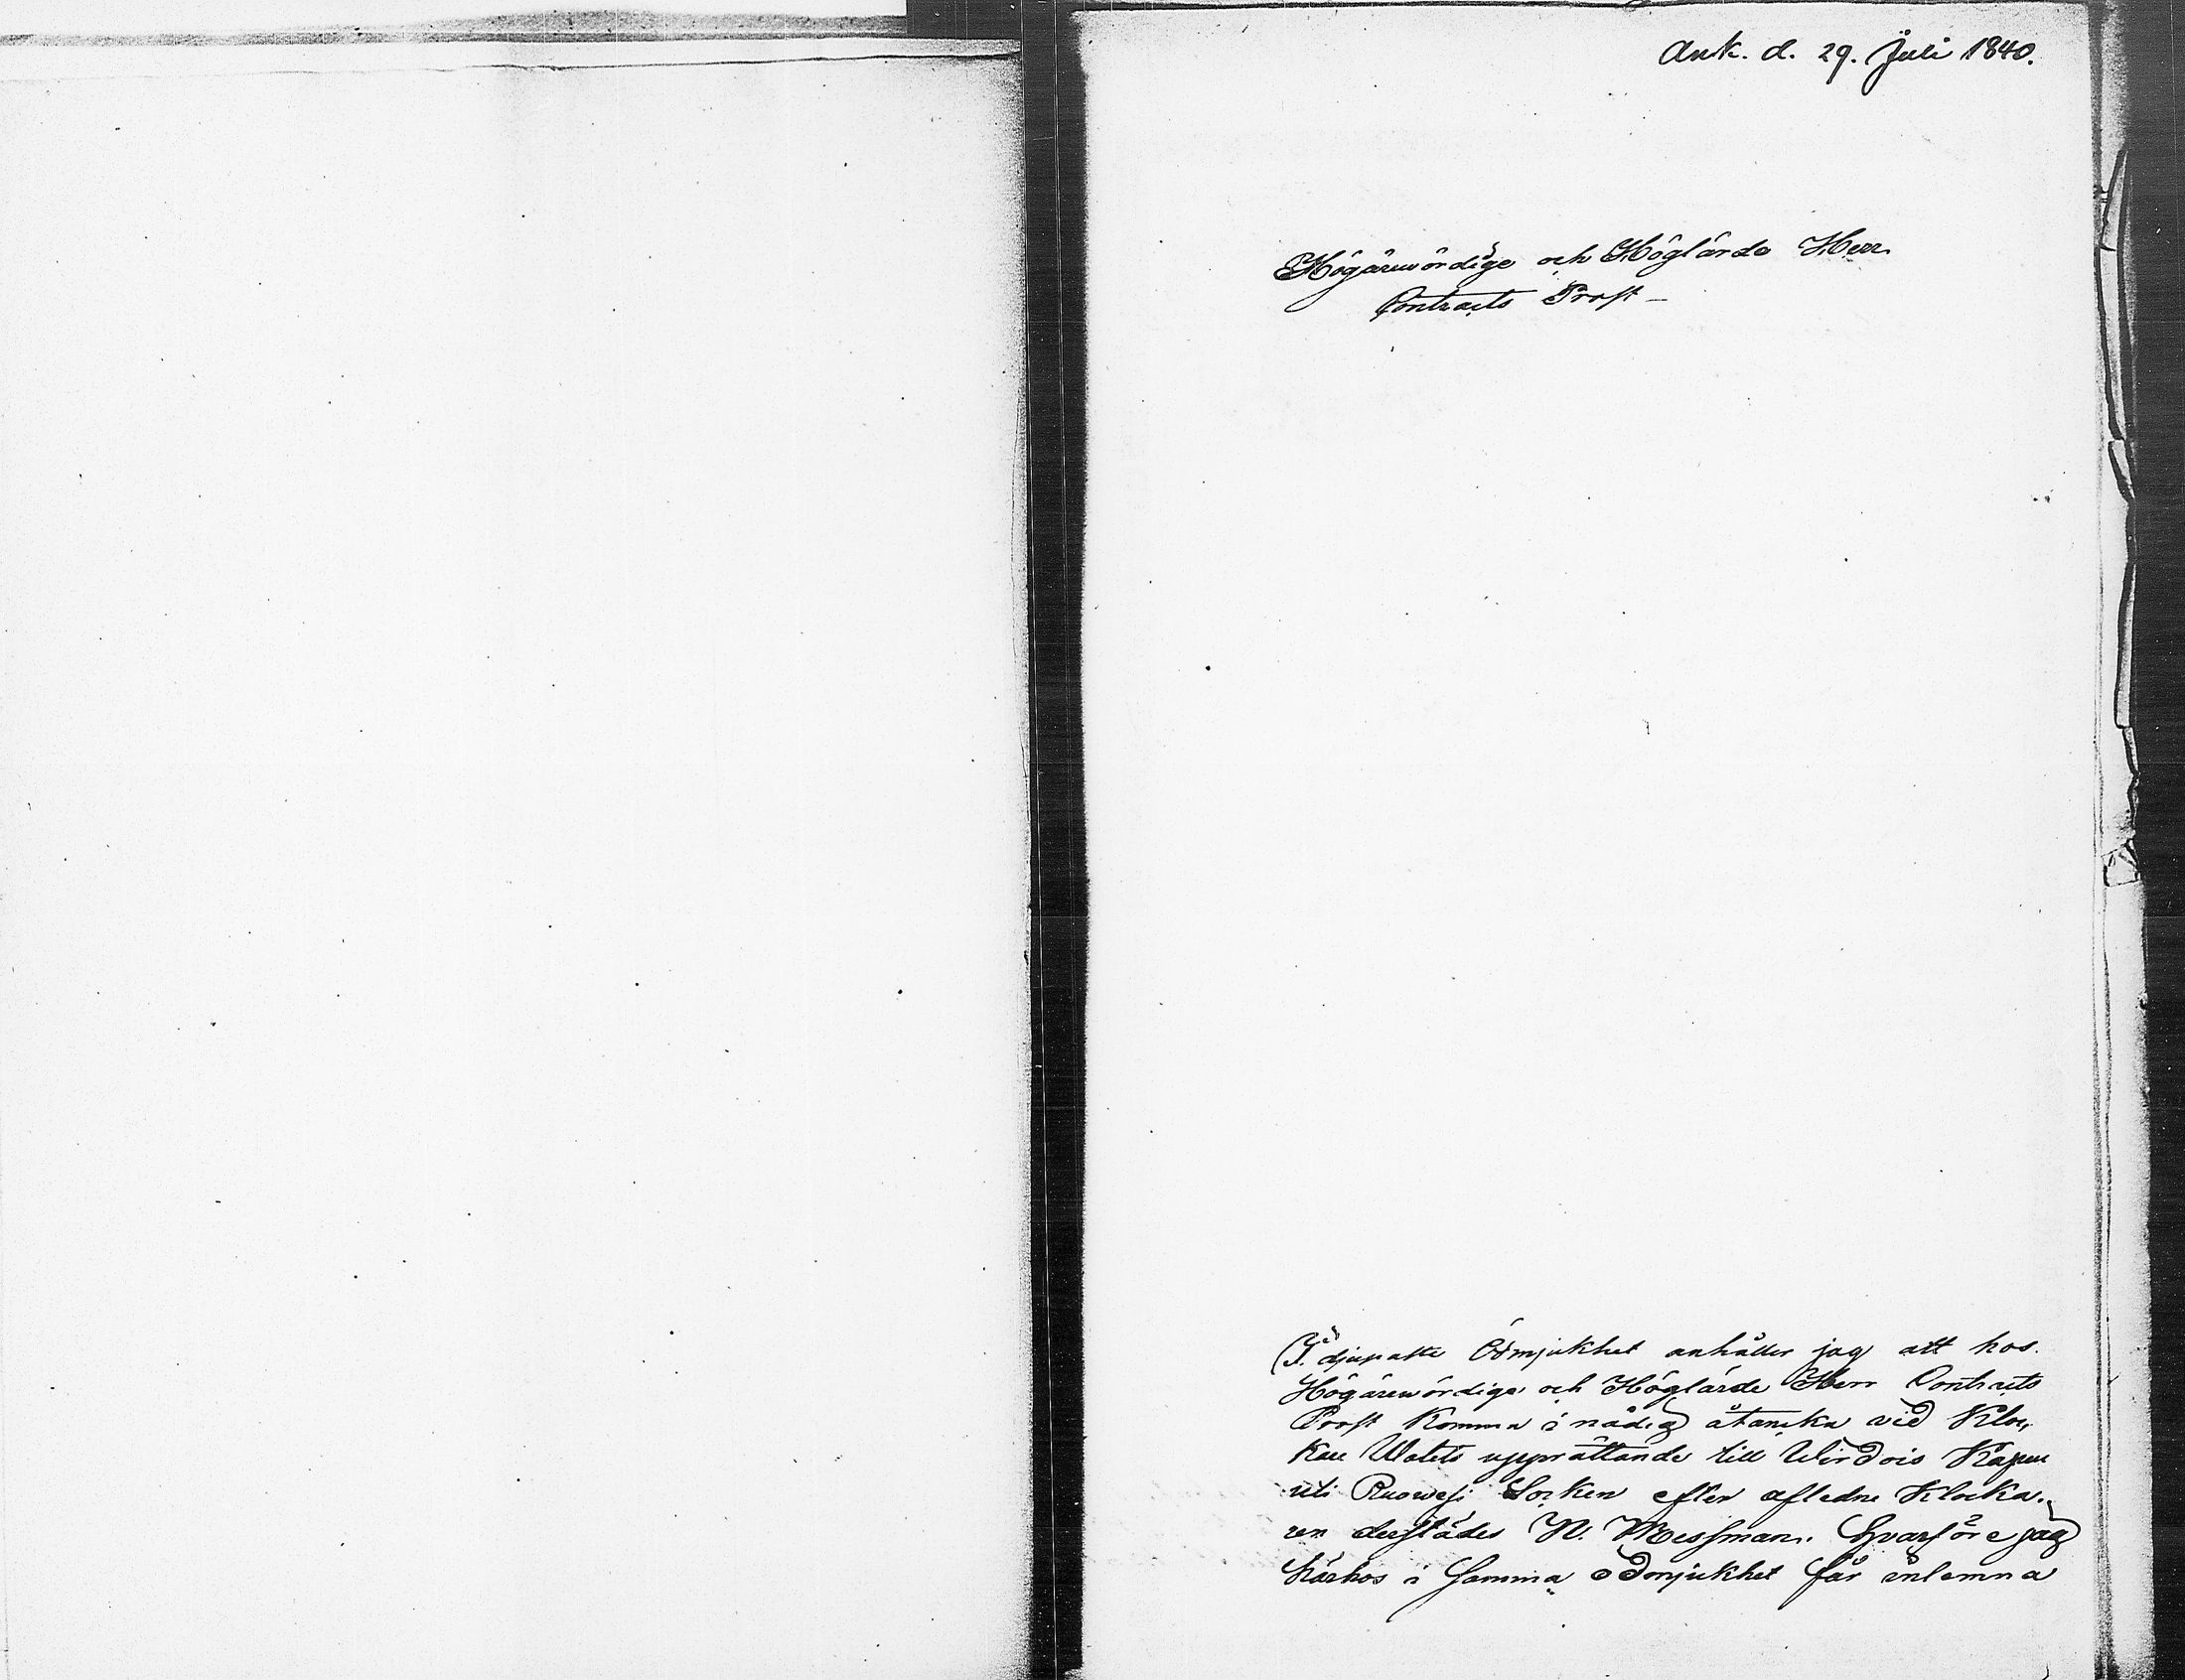 Ank. d. 29. Juli 1840.
Högärewördige och Höglärde Herr
Contracts Prost –
I djupaste Ödmjukhet anhåller jag att hos
Högärewördige och Höglärde Herr Contracts
Prost komma i nådig åtancka vid Kloc,
kare Walets upprättande till Wirdois Kapell
uti Ruowesi Socken efter afledne Klocka-
ren derstädes N. Messman. Hvarföre jag
härhos i samma ödmjukhet får inlemna